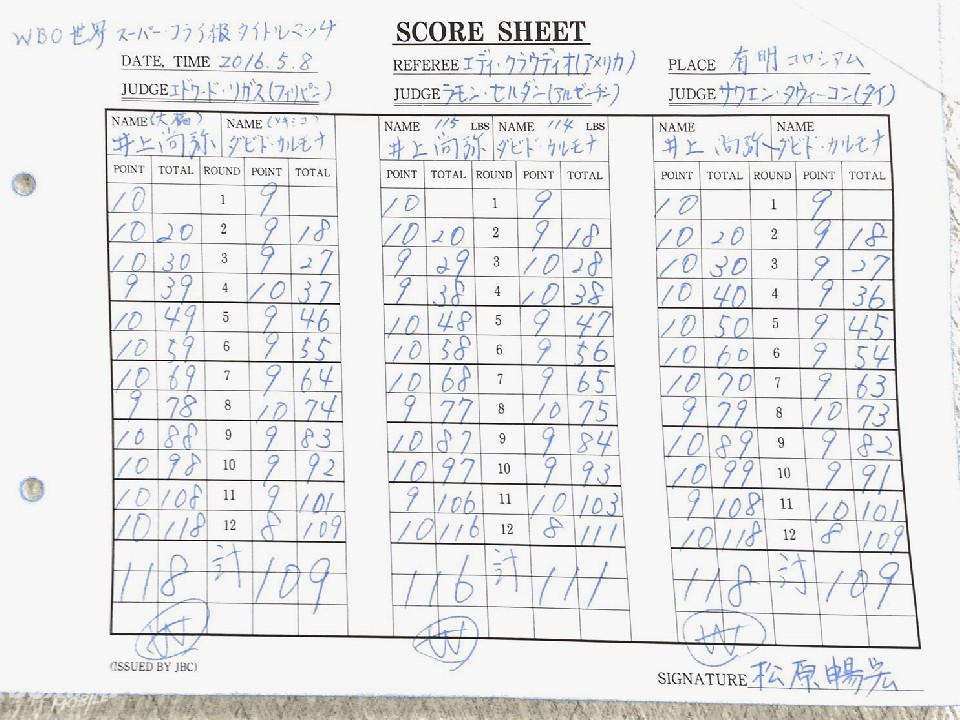 WBO世界 スーパーフライ級 タイトルマッチ
SCORE SHEET
DATE, TIME 2016.5.8 REFEREE エディ・クラウディオ(アメリカ) PLACE 有明コロシアム
JUDGE エドワード・リガス(フィリピン) JUDGE ラモン・セルダン(アルゼンチン) JUDGE サワエン・タウィーコン(タイ)
NAME (大橋) NAME (メキシコ) NAME 115 LBS NAME 114 LBS NAME NAME
井上尚弥 ダビド・カルモナ 井上尚弥 ダビド・カルモナ 井上尚弥 ダビド・カルモナ
POINT TOTAL ROUND POINT TOTAL POINT TOTAL ROUND POINT TOTAL POINT TOTAL ROUND POINT TOTAL
10 1 9 10 1 9 10 1 9
10 20 2 9 18 10 20 2 9 18 10 20 2 9 18
10 30 3 9 27 9 29 3 10 28 10 30 3 9 27
9 39 4 10 37 9 38 4 10 38 10 40 4 9 36
10 49 5 9 46 10 48 5 9 47 10 50 5 9 45
10 59 6 9 55 10 58 6 9 56 10 60 6 9 54
10 69 7 9 64 10 68 7 9 65 10 70 7 9 63
9 78 8 10 74 9 77 8 10 75 9 79 8 10 73
10 88 9 9 83 10 87 9 9 84 10 89 9 9 82
10 98 10 9 92 10 97 10 9 93 10 99 10 9 91
10 108 11 9 101 9 106 11 10 103 9 108 11 10 101
10 118 12 8 109 10 116 12 8 111 10 118 12 8 109
118 計 109 116 計 111 118 計 109
W W W
(ISSUED BY JBC) SIGNATURE 松原暢宏